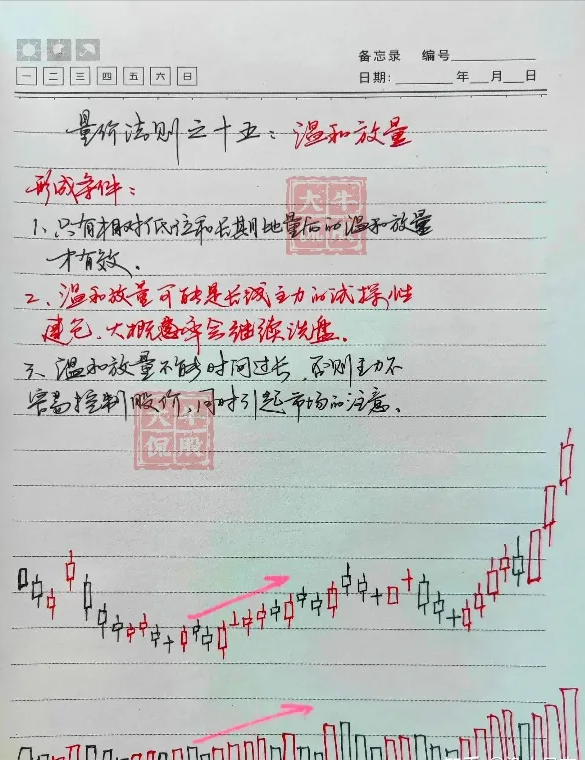 备忘录 编号
一 二 三 四 五 六 日
日期: 年 月 日
量价法则之十五：温和放量
形成条件：
大牛
侃股
1、只有相对低位和长期地量后的温和放量
才有效.
2、温和放量可能是长线主力的试探性
建仓、大概率会继续洗盘.
3、温和放量不能时间过长,否则主力不
容易控制股价,同时引起市场的注意.
大牛
侃股